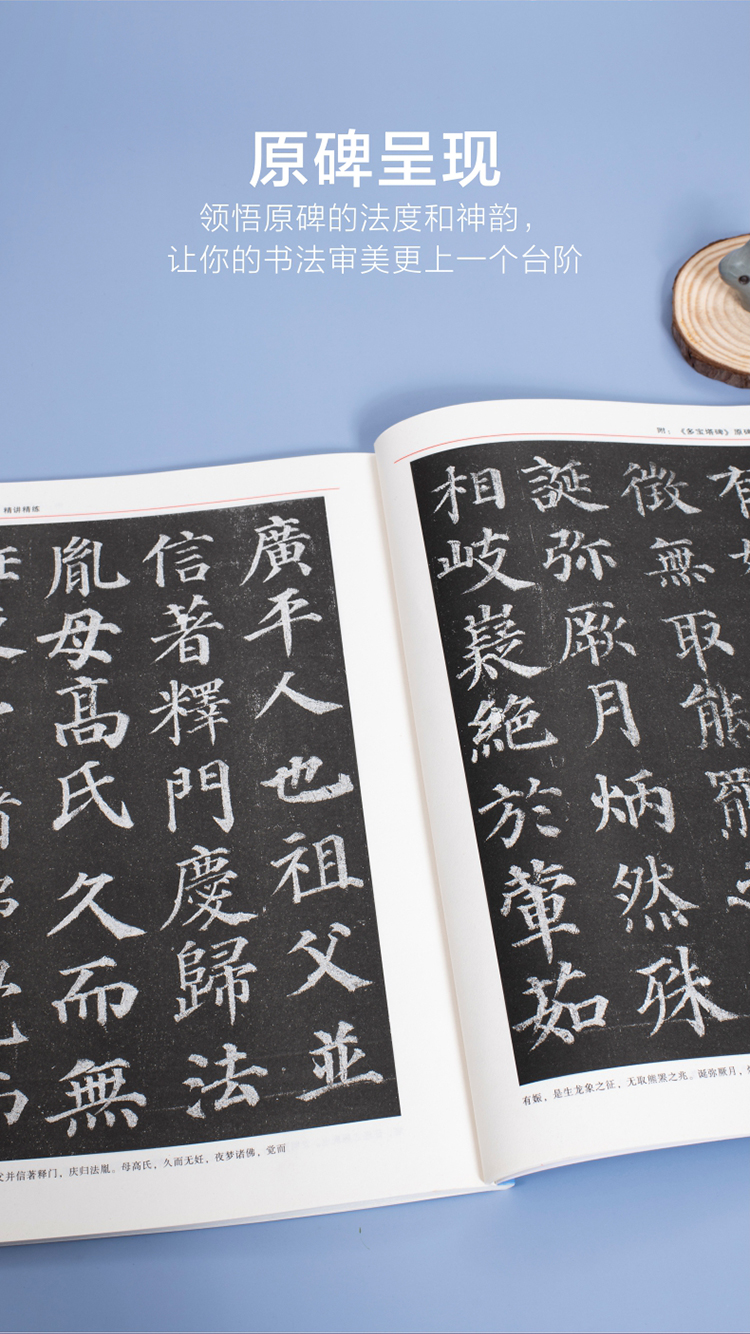 原碑呈现
领悟原碑的法度和神韵，
让你的书法审美更上一个台阶
精讲精练
廣平人也祖父並
信著釋門慶歸法
胤母髙氏久而無
父并信著释门，庆归法胤。母高氏，久而无妊，夜梦诸佛，觉而
附：《多宝塔碑》原碑
誕彌厥月炳然殊
相岐嶷絶於葷茹
有娠，是生龙象之征，无取熊罴之兆。诞弥厥月，